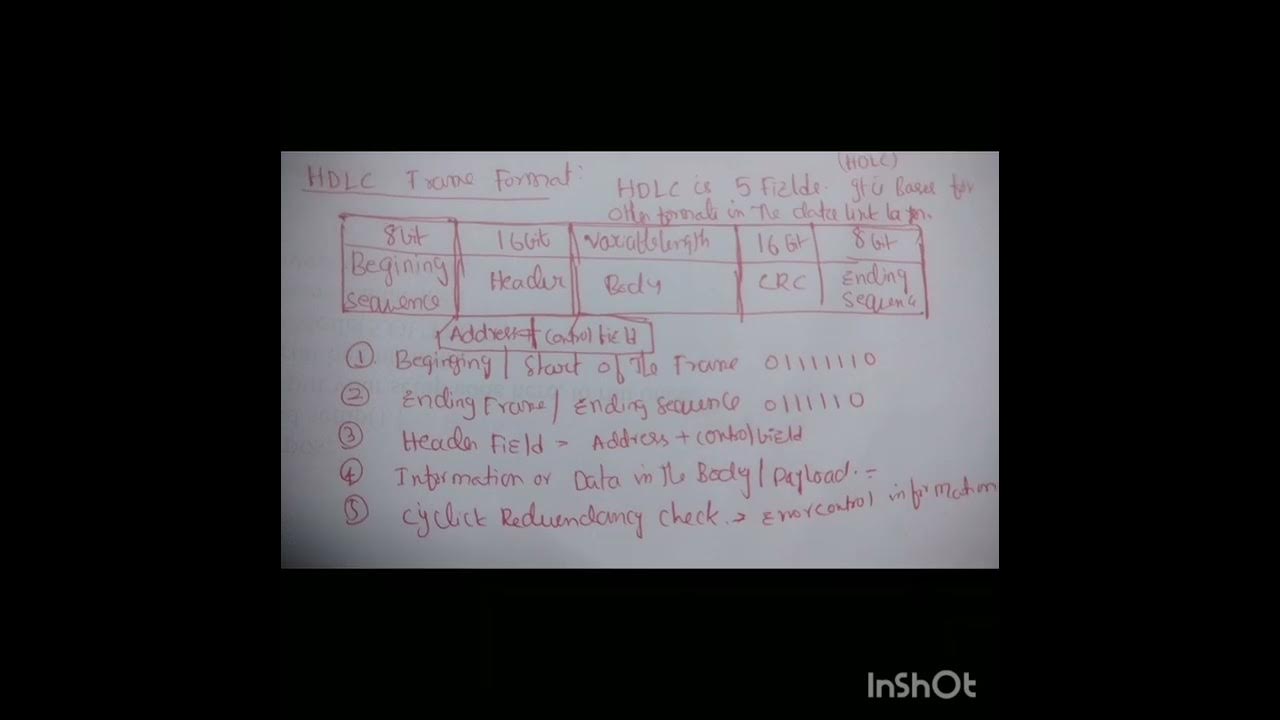 (HDLC)
HDLC Frame Format:
HDLC is 5 Fields. It is Bases for
Other formats in The data link layer.
8bit 16bit variable length 16 bit 8 bit
Begining Header Body CRC Ending
sequence Sequence
Address + Control field
① Beginging / Start of The Frame 01111110
② Ending Frame / Ending Sequence 0111110
③ Header Field = Address + Control field
④ Information or Data in The Body / Payload. =
⑤ Cyclick Reduendancy check. → Error control information
InShOt